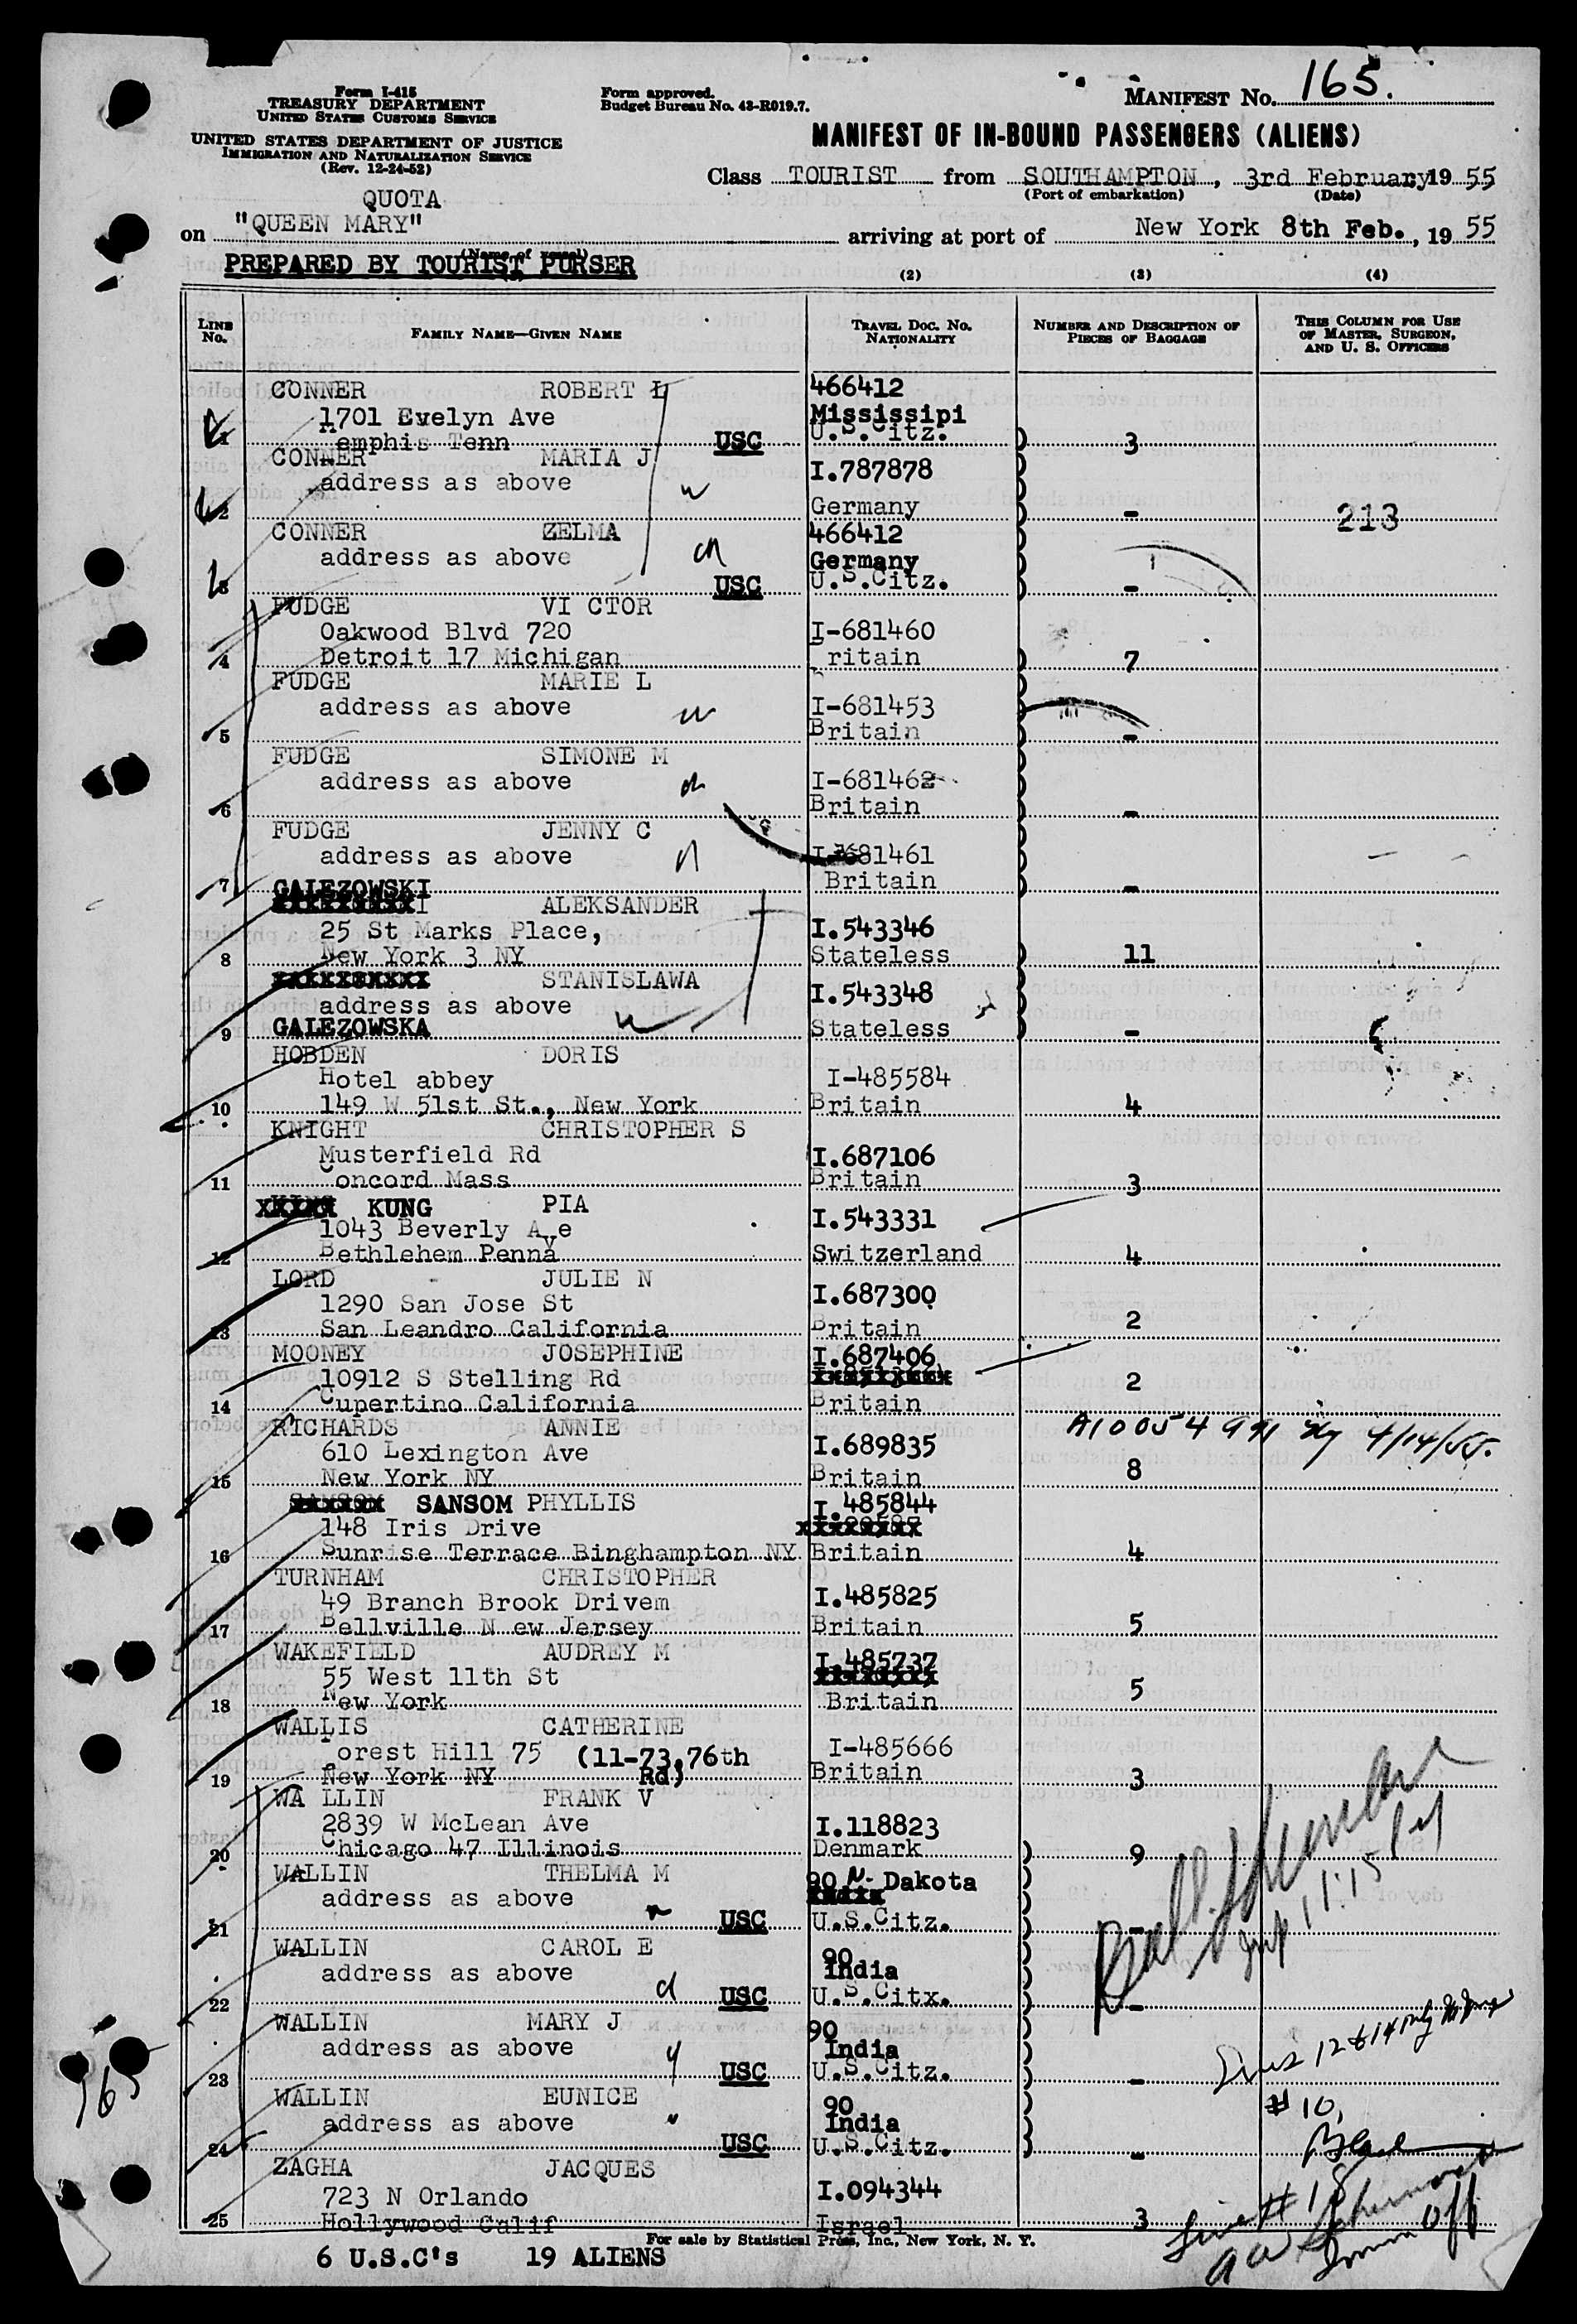 Form I-415
TREASURY DEPARTMENT
UNITED STATES CUSTOMS SERVICE
UNITED STATES DEPARTMENT OF JUSTICE
IMMIGRATION AND NATURALIZATION SERVICE
(Rev. 12-24-52)
Form approved.
Budget Bureau No. 43-R019.7.
MANIFEST No. 165.
MANIFEST OF IN-BOUND PASSENGERS (ALIENS)
Class TOURIST from SOUTHAMPTON, 3rd February, 19 55
(Port of embarkation) (Date)
QUOTA
on "QUEEN MARY" arriving at port of New York 8th Feb., 19 55
(Name of vessel)
PREPARED BY TOURIST PURSER (2) (3) (4)
LINE No. FAMILY NAME—GIVEN NAME TRAVEL DOC. NO. NATIONALITY NUMBER AND DESCRIPTION OF PIECES OF BAGGAGE THIS COLUMN FOR USE OF MASTER, SURGEON, AND U. S. OFFICERS
CONNER ROBERT L 466412
1701 Evelyn Ave Mississipi
1 Memphis Tenn USC U.S.Citz. 3
CONNER MARIA J I.787878
address as above
2 Germany - 213
CONNER ZELMA 466412
address as above Germany
3 USC U.S.Citz. -
FUDGE VI CTOR
Oakwood Blvd 720 I-681460
4 Detroit 17 Michigan Britain 7
FUDGE MARIE L
address as above I-681453
5 Britain -
FUDGE SIMONE M
address as above I-681462
6 Britain -
FUDGE JENNY C
address as above I-681461
7 Britain -
GALEZOWSKI
ALEKSANDER
25 St Marks Place, I.543346
8 New York 3 NY Stateless 11
STANISLAWA I.543348
address as above
9 GALEZOWSKA Stateless -
HOBDEN DORIS
Hotel abbey I-485584
10 149 W 51st St., New York Britain 4
KNIGHT CHRISTOPHER S
Musterfield Rd I.687106
11 Concord Mass Britain 3
KUNG PIA I.543331
1043 Beverly Ave
12 Bethlehem Penna Switzerland 4
LORD JULIE N
1290 San Jose St I.687300
13 San Leandro California Britain 2
MOONEY JOSEPHINE I.687406
10912 S Stelling Rd 2
14 Cupertino California Britain
RICHARDS ANNIE A10 054 991 4/14/55.
610 Lexington Ave I.689835
15 New York NY Britain 8
SANSOM PHYLLIS I.485844
148 Iris Drive
16 Sunrise Terrace Binghampton NY Britain 4
TURNHAM CHRISTOPHER
49 Branch Brook Drivem I.485825
17 Bellville N ew Jersey Britain 5
WAKEFIELD AUDREY M I.485737
55 West 11th St
18 New York Britain 5
WALLIS CATHERINE
Forest Hill 75 (11-73,76th I-485666
19 New York NY Rd) Britain 3
WA LLIN FRANK V
2839 W McLean Ave I.118823
20 Chicago 47 Illinois Denmark 9
WALLIN THELMA M 90 N. Dakota
address as above
21 USC U.S.Citz. -
WALLIN CAROL E 90
address as above India
22 USC U.S.Citx. -
WALLIN MARY J 90
address as above India
23 USC U.S.Citz. -
WALLIN EUNICE 90
address as above India
24 USC U.S.Citz. -
ZAGHA JACQUES
723 N Orlando I.094344
25 Hollywood Calif Israel 3
For sale by Statistical Press, Inc., New York, N. Y.
6 U.S.C's 19 ALIENS
11:15
#10,
165
Line #18